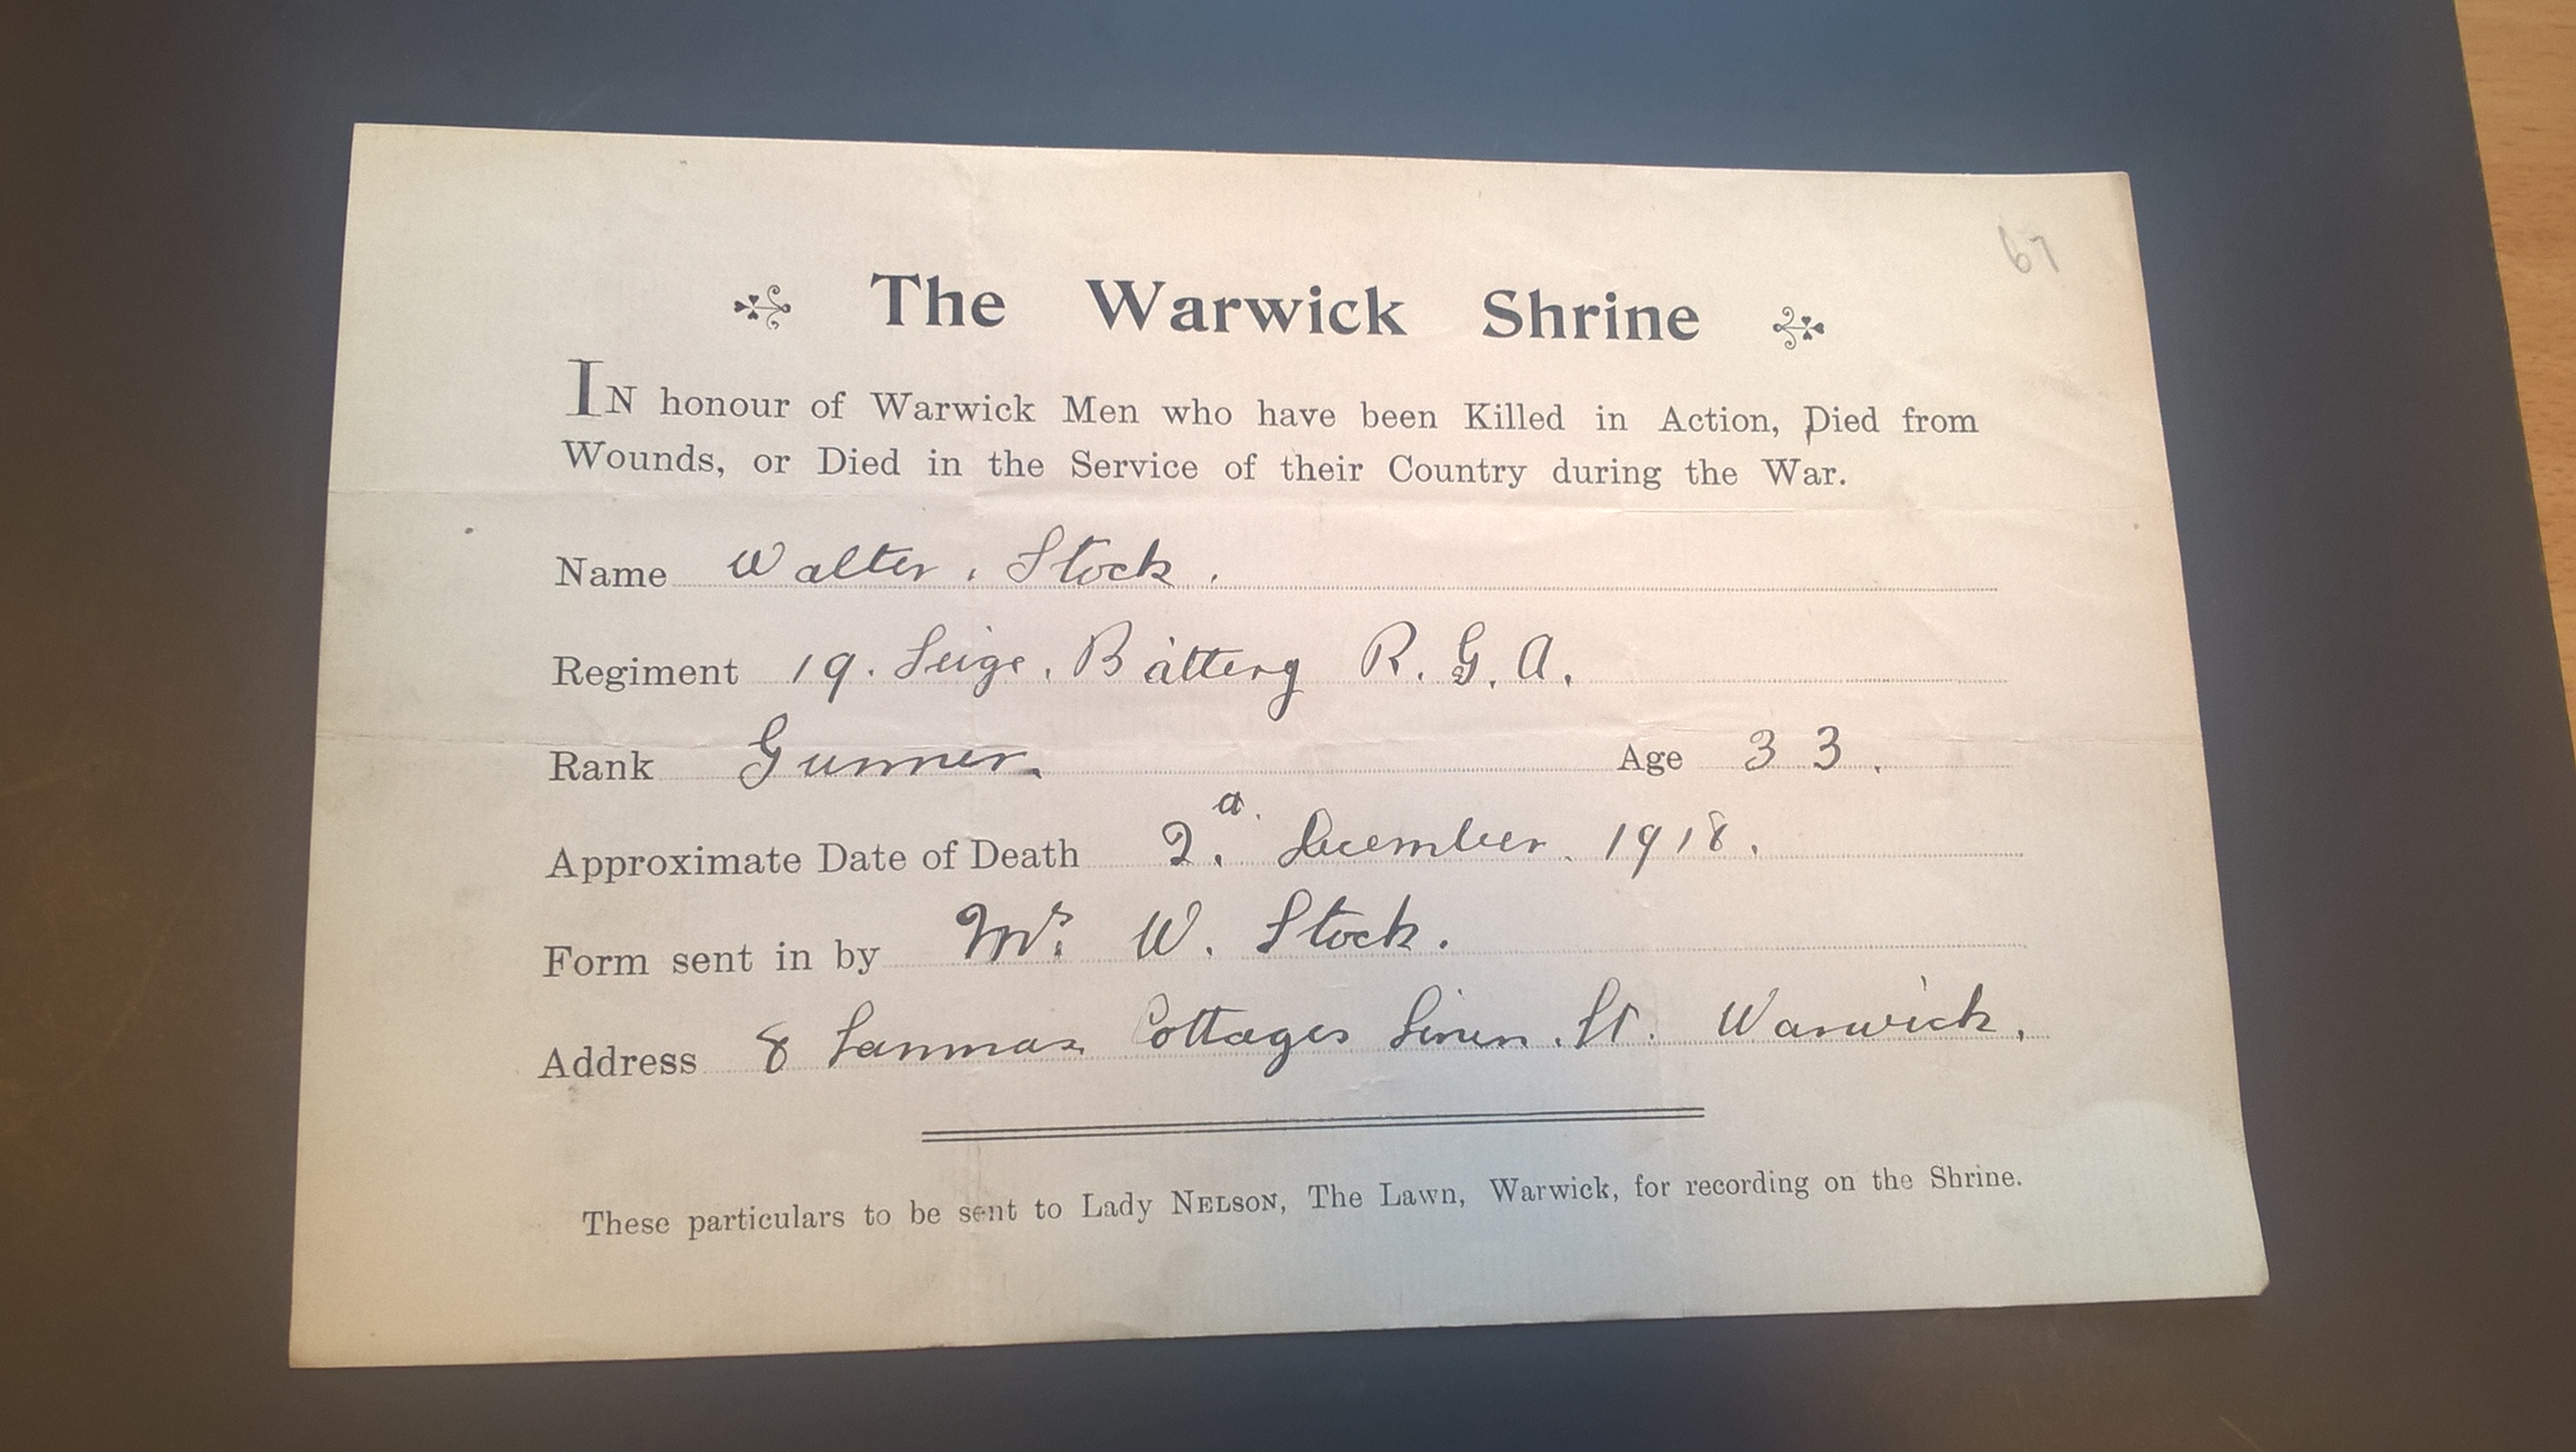 67
The Warwick Shrine
IN honour of Warwick Men who have been Killed in Action, Died from
Wounds, or Died in the Service of their Country during the War.
Name Walter. Stock.
Regiment 19. Seige. Battery R. G. A.
Rank Gunner. Age 33.
Approximate Date of Death 2. December. 1918.
Form sent in by Mrs. W. Stock.
Address 8 Lammas Cottages Linen. St. Warwick.
These particulars to be sent to Lady NELSON, The Lawn, Warwick, for recording on the Shrine.